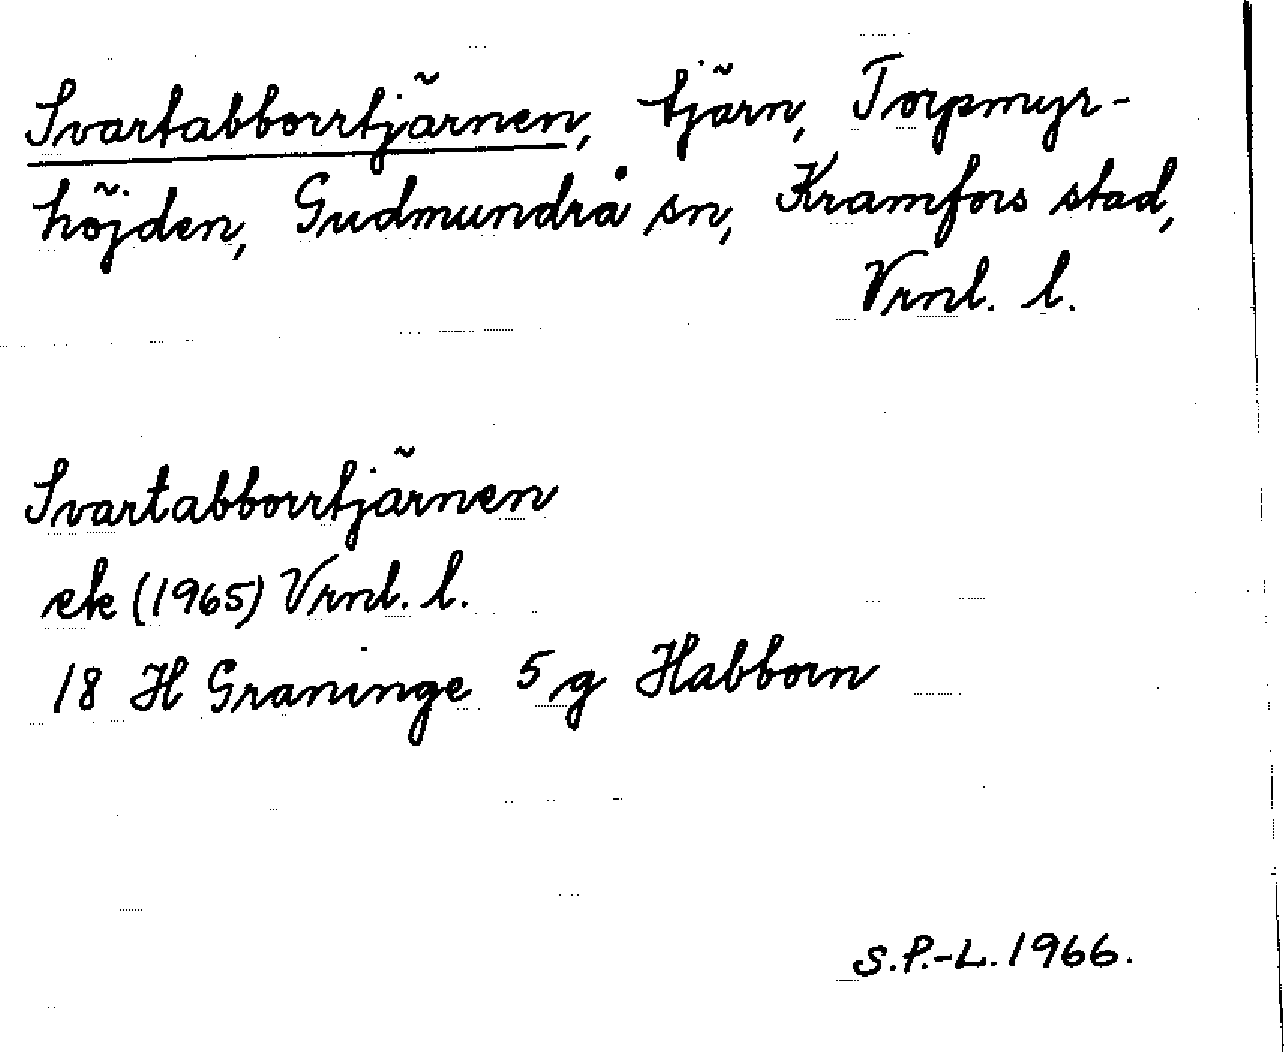 Svartabborrtjärnen, tjärn, Torpmyr-
höjden, Gudmundrå sn, Kramfors stad,
Vrnl. l.
Svartabborrtjärnen
ek (1965) Vrnl. l.
18 H Graninge 5 g Habborn
S.P.-L. 1966.